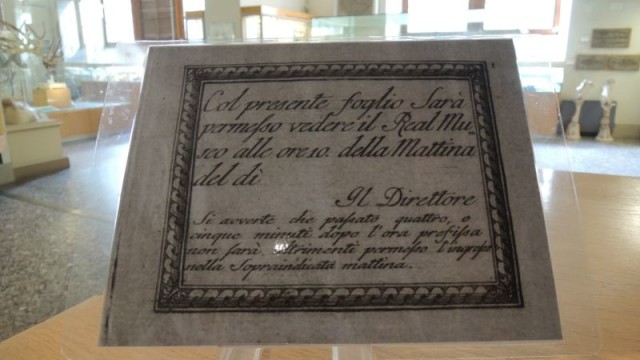 Col presente foglio Sarà
permesso vedere il Real Mu-
seo alle ore 10. della Mattina
del dì
Il Direttore
Si avverte che passato quattro, o
cinque minuti dopo l'ora prefissa
non sarà altrimenti permesso l'ingresso
nella Sopraindicata mattina.